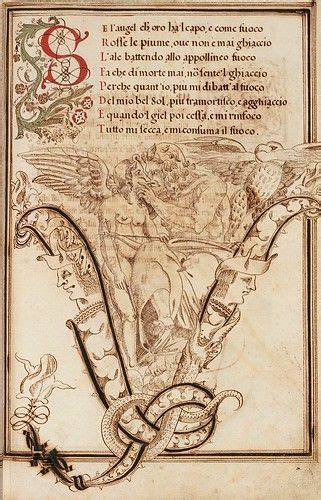 SE l'augel ch'oro ha'l capo, e come fuoco
Rosse le piume, oue non e mai ghiaccio
L'ale battendo allo appollineo fuoco
Fa che di morte mai, nō sente'l ghiaccio
Perche quant'io, piu mi dibatt'al fuoco
Del mio bel Sol, piu tramortisco, e agghiaccio
E quando'l giel poi cessa, e mi rinfoco
Tutto mi secca, e mi consuma il fuoco.